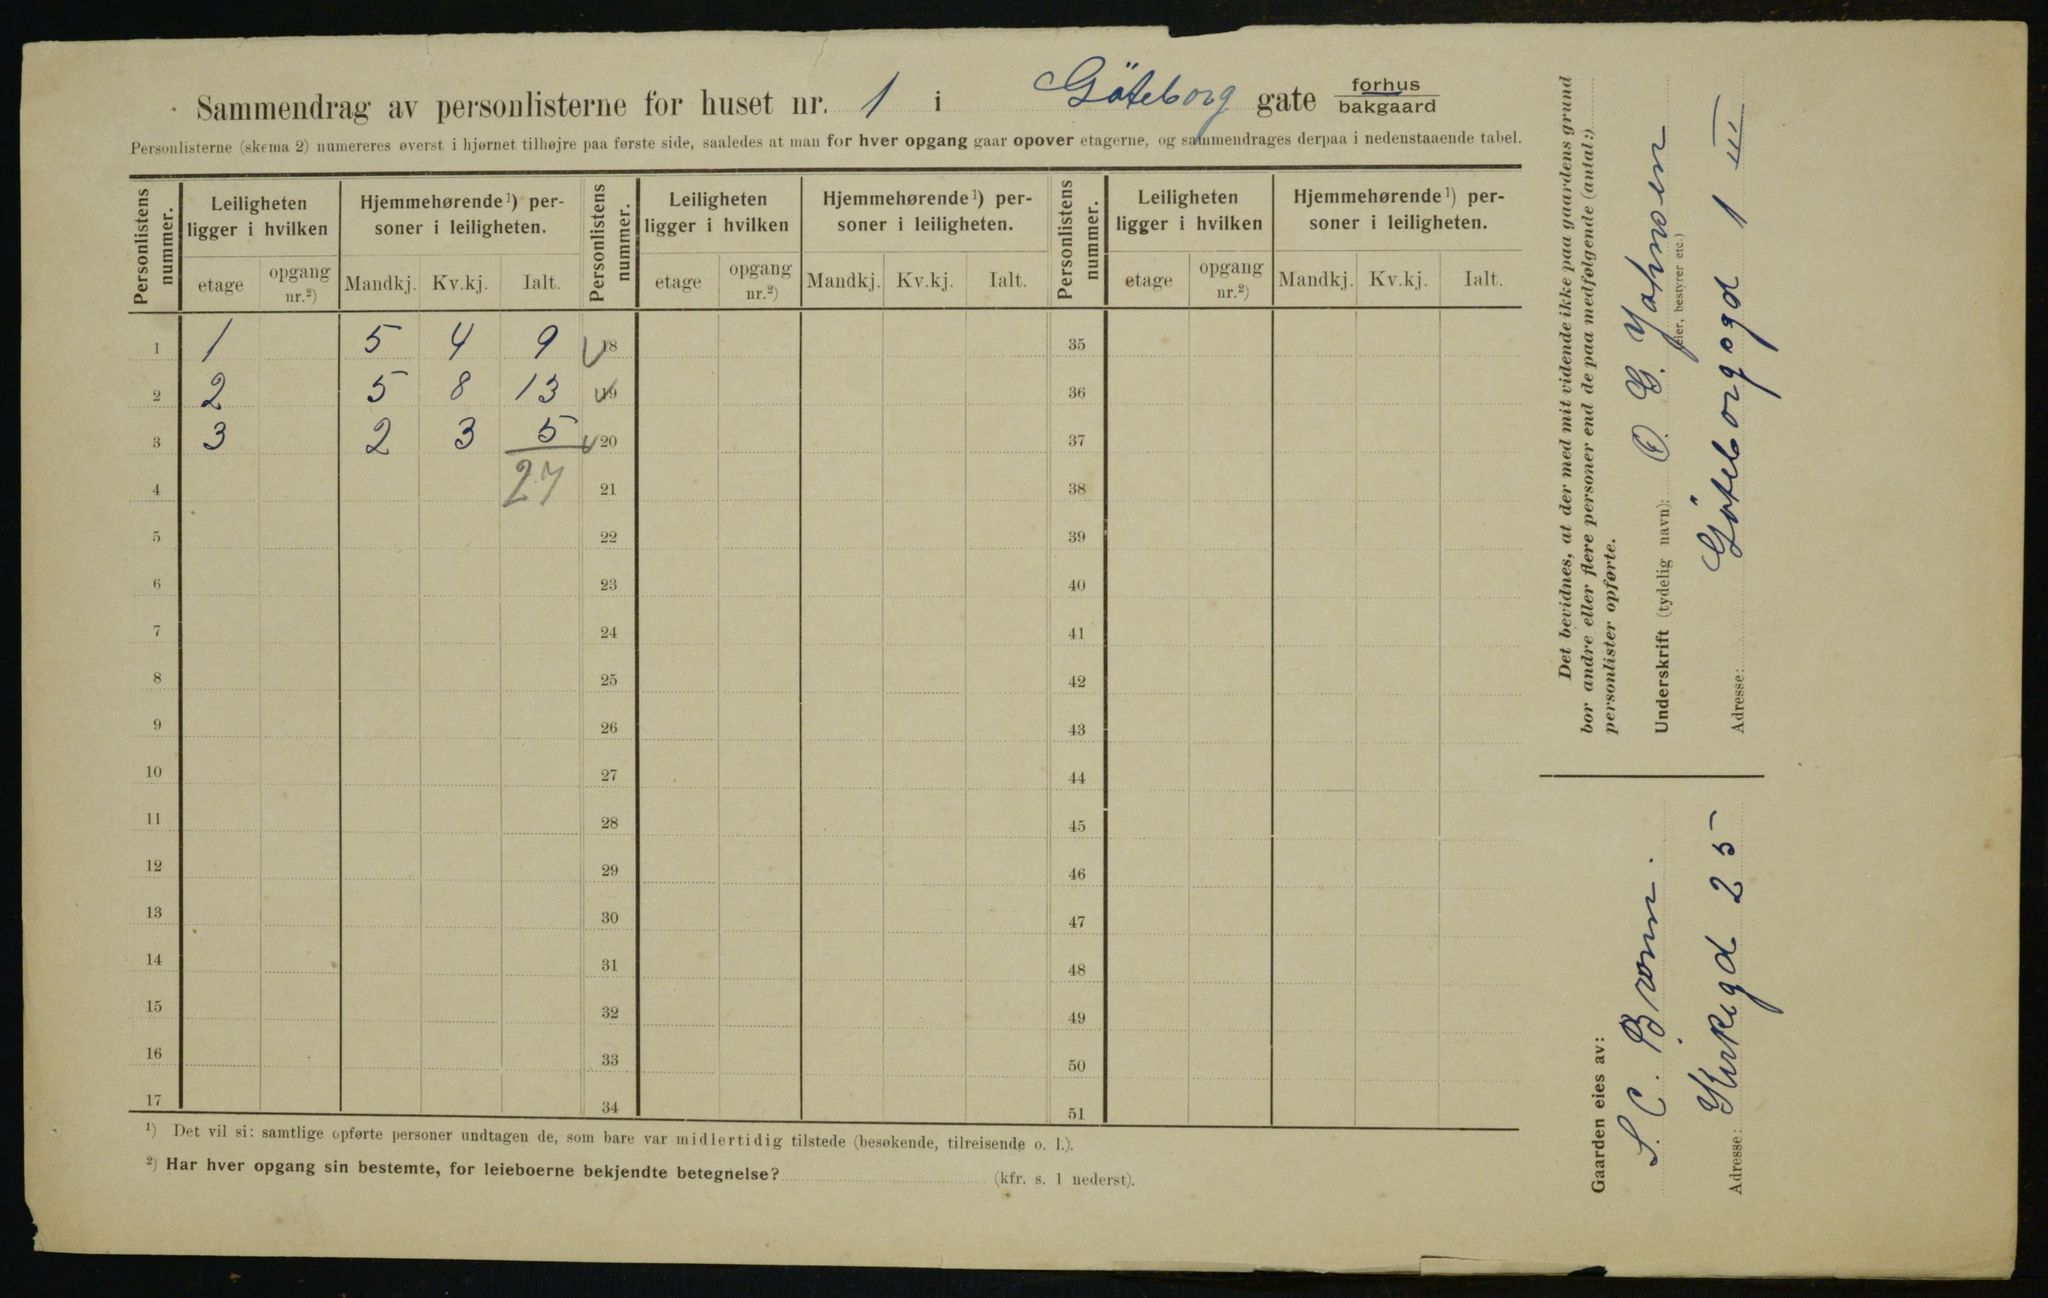 Sammendrag av personlisterne for huset nr. 1 i Göteborg gate forhus bakgaard
Personlisterne (skema 2) numereres øverst i hjørnet tilhøjre paa første side, saaledes at man for hver opgang gaar opover etagerne, og sammendrages derpaa i nedenstaaende tabel.
Personlistens nummer. Leiligheten ligger i hvilken Hjemmehørende¹) personer i leiligheten. Personlistens nummer. Leiligheten ligger i hvilken Hjemmehørende¹) personer i leiligheten. Personlistens nummer. Leiligheten ligger i hvilken Hjemmehørende¹) personer i leiligheten.
etage opgang nr.²) Mandkj. Kv.kj. Ialt. etage opgang nr.²) Mandkj. Kv.kj. Ialt. etage opgang nr.²) Mandkj. Kv.kj. Ialt.
1 1 5 4 9 18 35
2 2 5 8 13 19 36
3 3 2 3 5 20 37
4 27 21 38
5 22 39
6 23 40
7 24 41
8 25 42
9 26 43
10 27 44
11 28 45
12 29 46
13 30 47
14 31 48
15 32 49
16 33 50
17 34 51
¹) Det vil si: samtlige opførte personer undtagen de, som bare var midlertidig tilstede (besøkende, tilreisende o. l.).
²) Har hver opgang sin bestemte, for leieboerne bekjendte betegnelse? (kfr. s. 1 nederst).
Det bevidnes, at der med mit vidende ikke paa gaardens grund
bor andre eller flere personer end de paa medfølgende (antal:)
personlister opførte.
Underskrift (tydelig navn): O. G. Johnsen
(eier, bestyrer etc.)
Adresse: Göteborggd 1 III
Gaarden eies av:
S. C. Bromm.
Adresse: Kirkegd 25